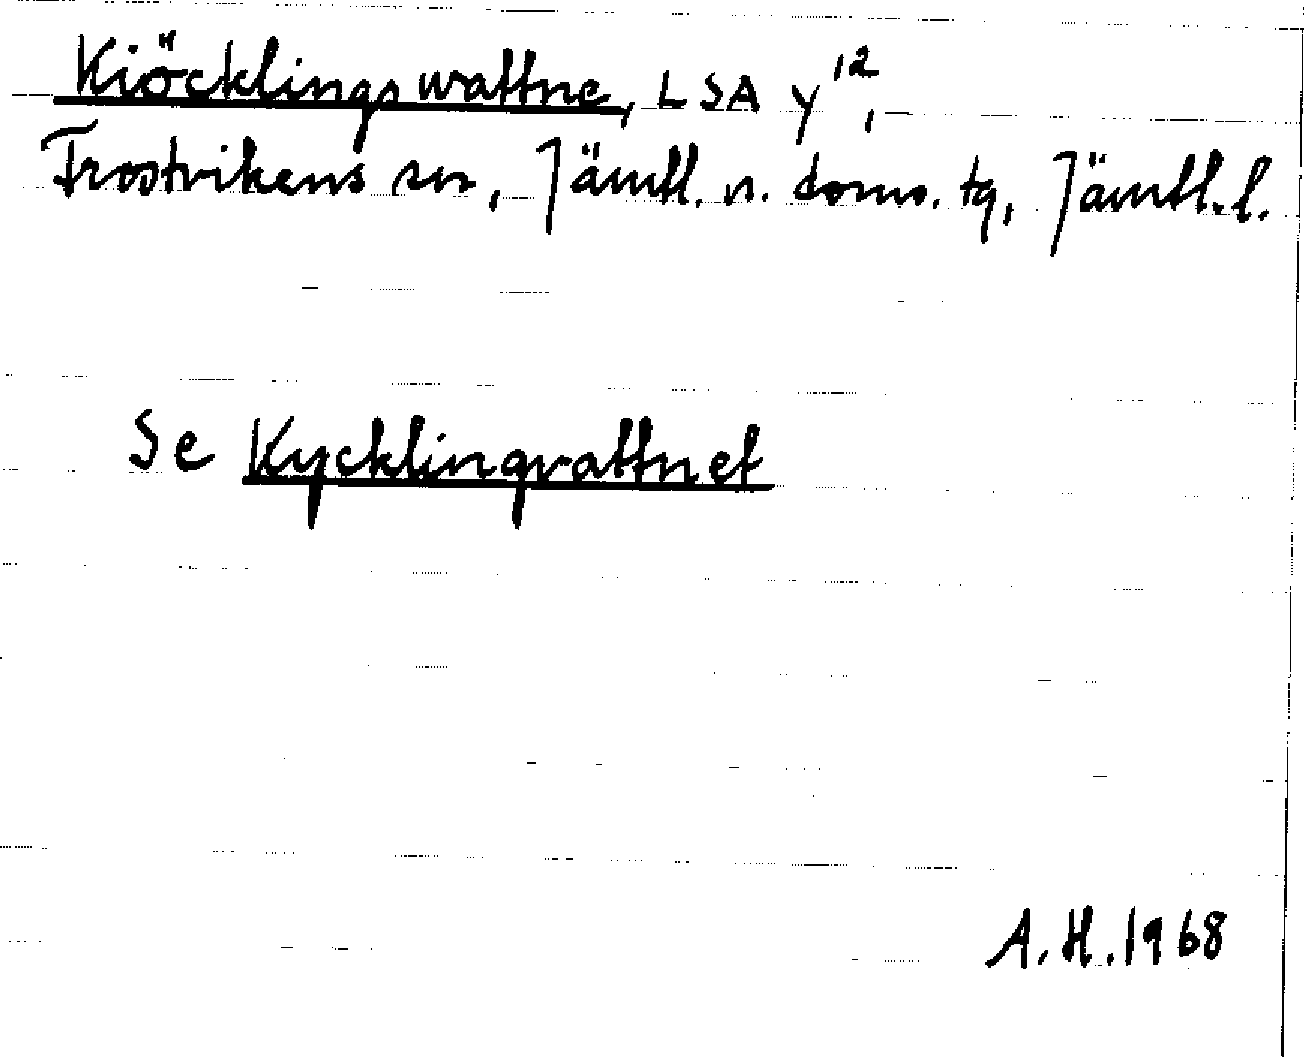 Kiöcklingswattne, LSA Y 12,
Frostvikens sn, Jämtl. n. doms. tg, Jämtl. l.
Se Kycklingvattnet
A. H. 1968